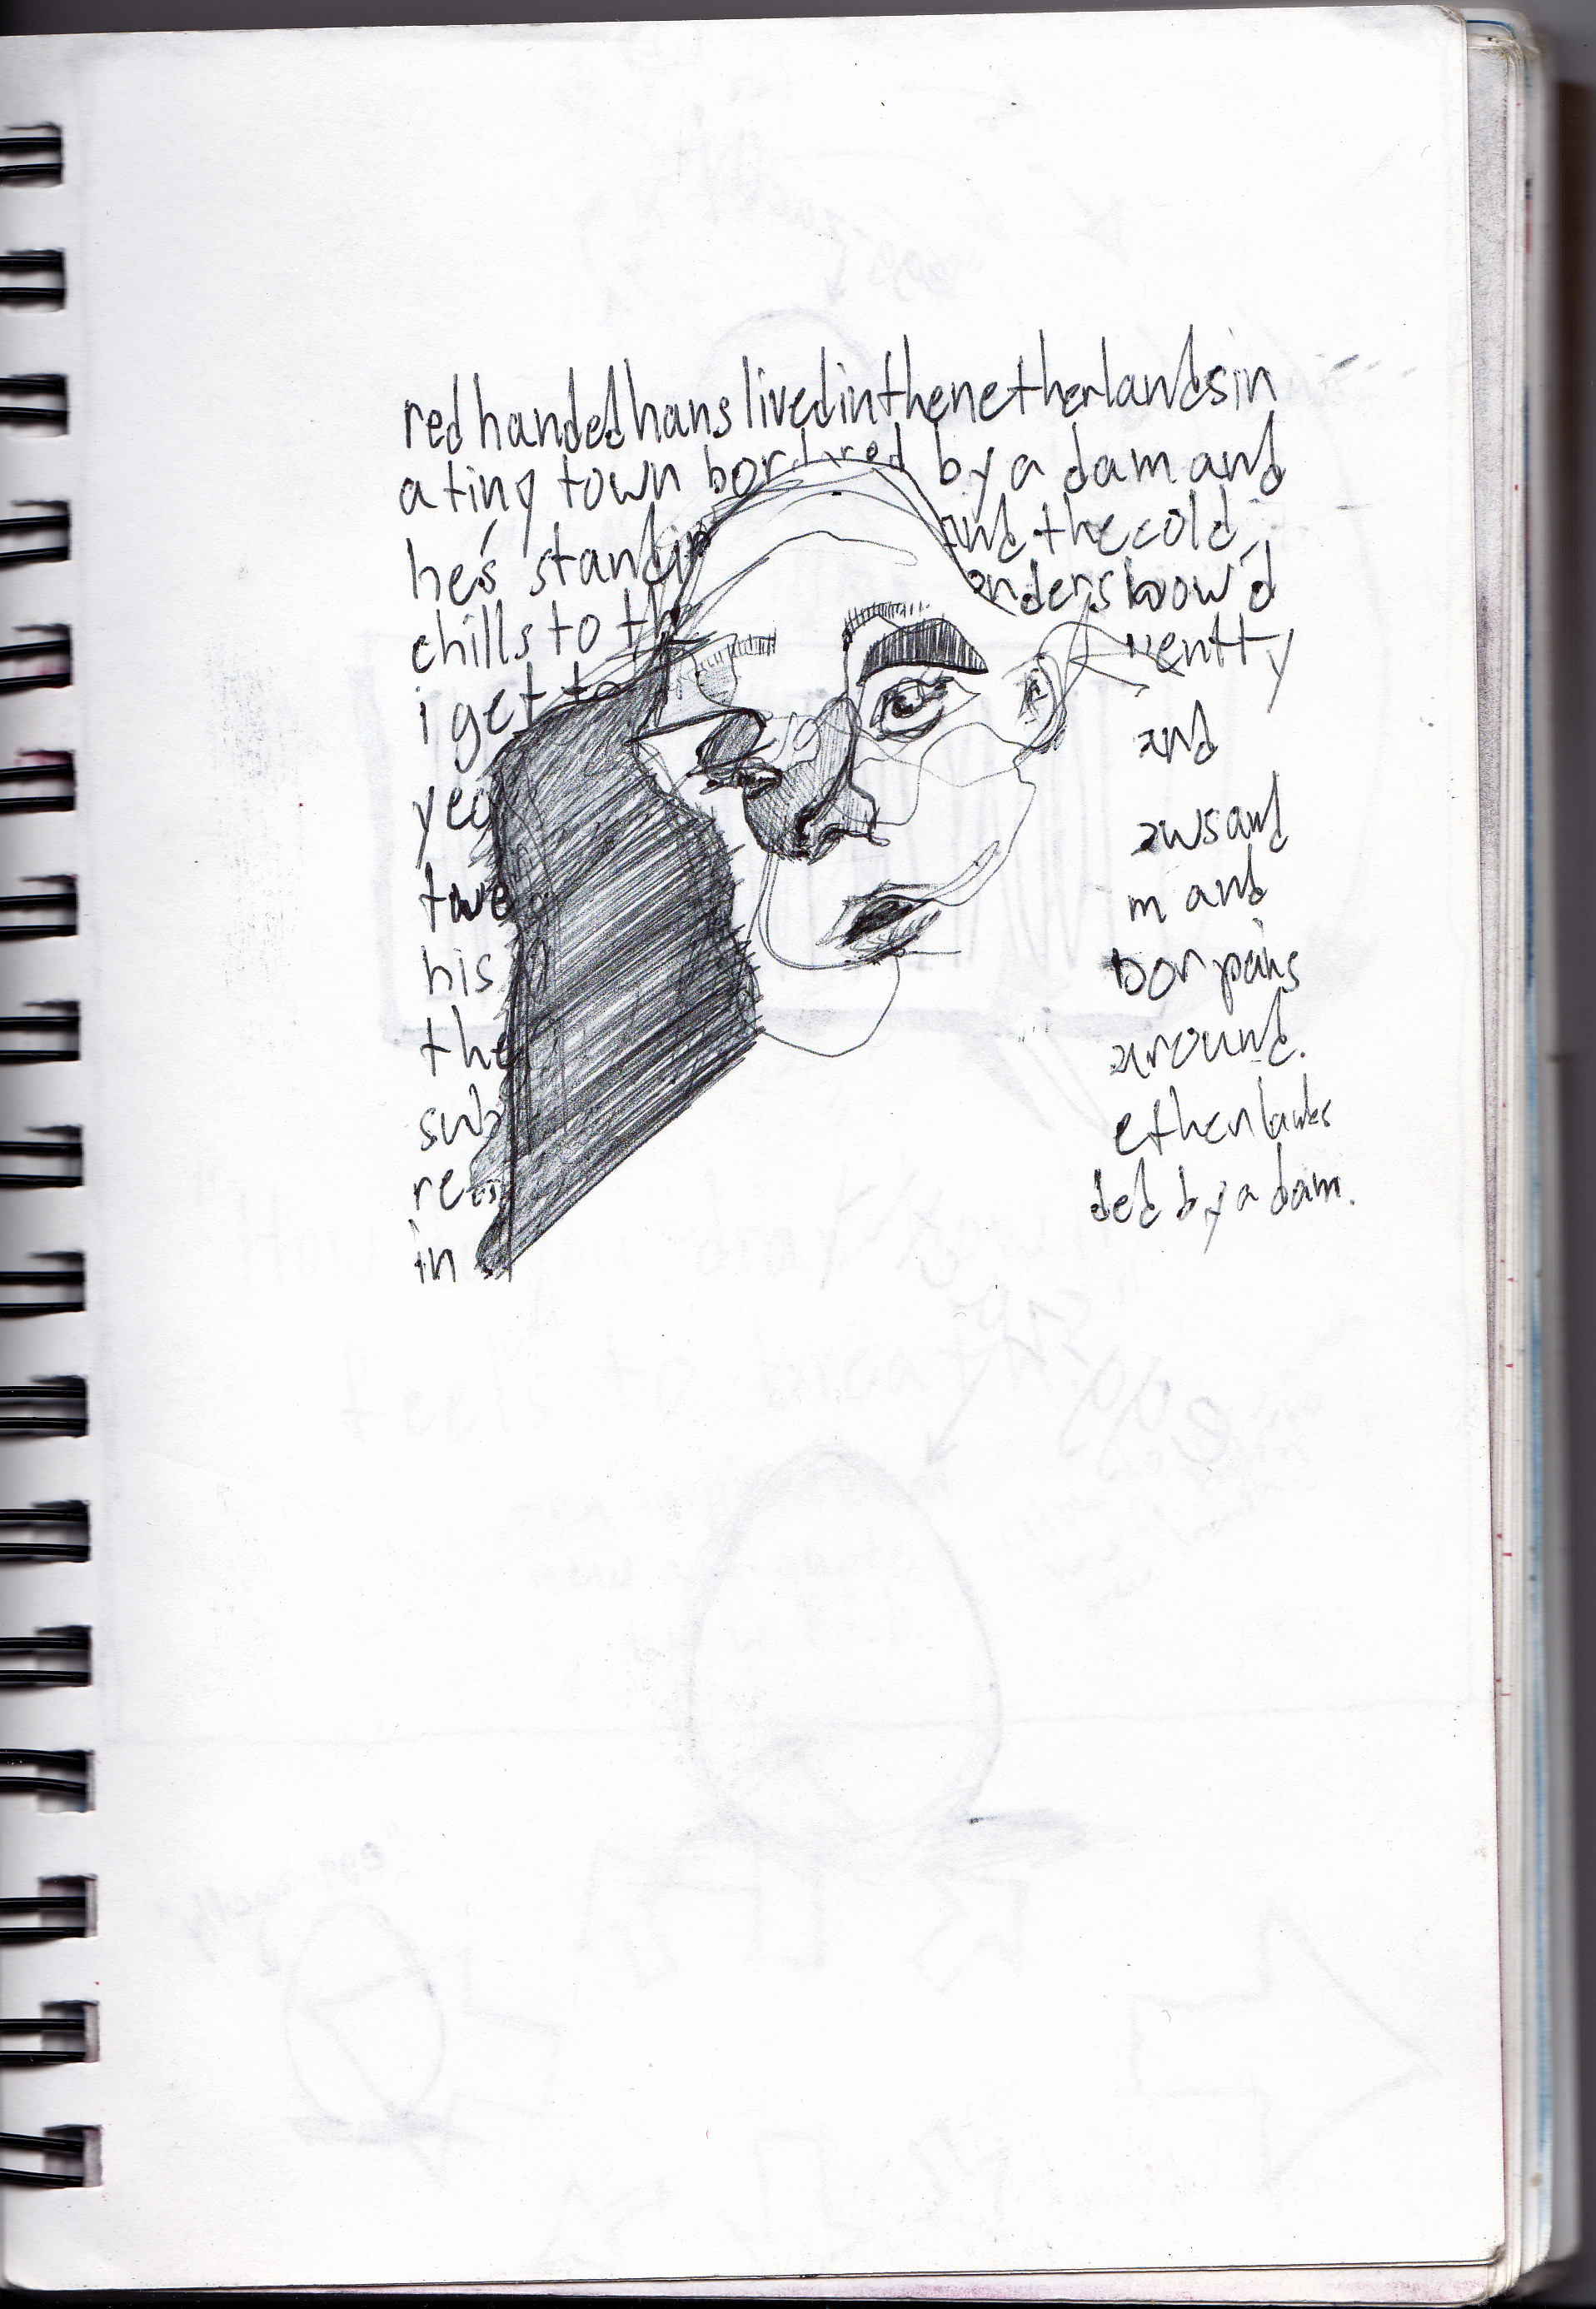 redhandedhanslivedinthenetherlandsin
a tiny town bordired by a dam and
he's standin and the cold
chills to th ndershow'd
i get to entty
yea and
twe awsand
his m and
the oor pains
sub around.
re etherlands
in ded by a dam.